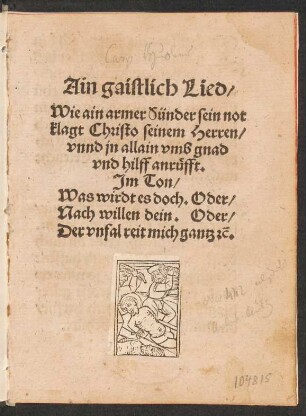 Ain gaistlich Lied/
Wie ain armer Sünder sein not
klagt Christo seinem Herren/
vnnd jn allain vmb gnad
vnd hilff anrüfft.
Im Ton/
Was wirdt es doch. Oder/
Nach willen dein. Oder/
Der vnfal reit mich gantz ꝛc̃.
104815